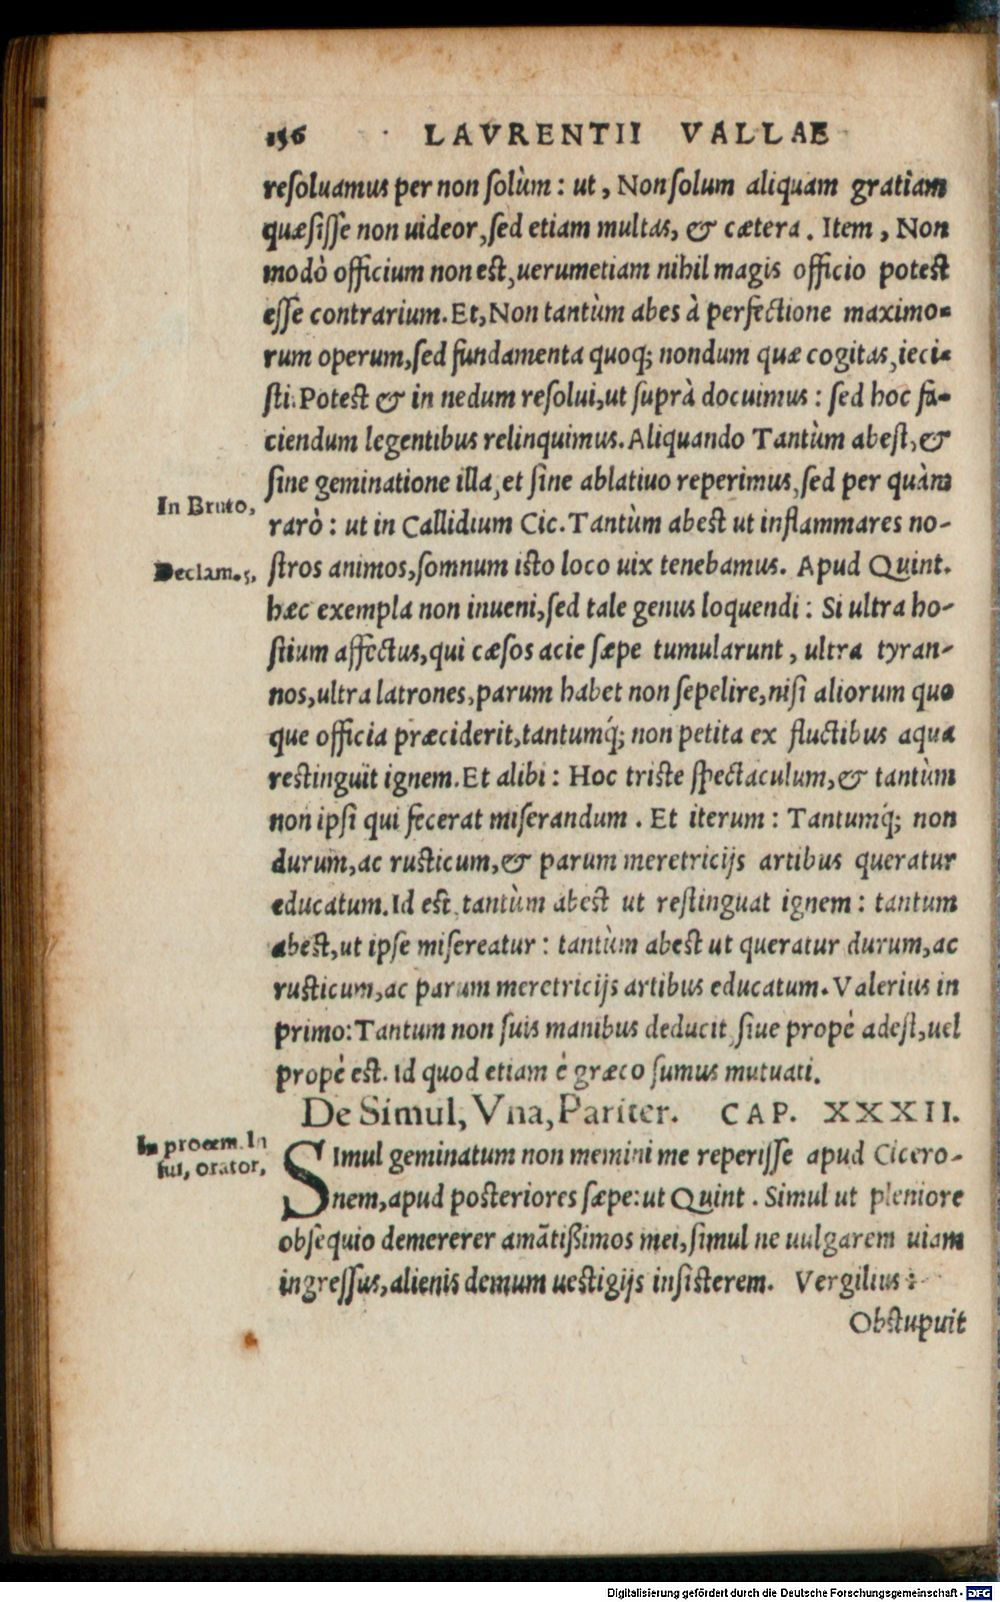 156 LAVRENTII VALLAE
resoluamus per non solùm: ut, Non solum aliquam gratiam
quæsisse non uideor, sed etiam multas, & cætera. Item, Non
modò officium non est, uerumetiam nihil magis officio potest
esse contrarium. Et, Non tantùm abes à perfectione maximo-
rum operum, sed fundamenta quoq; nondum quæ cogitas, ieci-
sti. Potest & in nedum resolui, ut suprà docuimus: sed hoc fa-
ciendum legentibus relinquimus. Aliquando Tantùm abest, &
sine geminatione illa, et sine ablatiuo reperimus, sed per quàm
In Bruto,
rarò: ut in Callidium Cic. Tantùm abest ut inflammares no-
Declam. 5,
stros animos, somnum isto loco uix tenebamus. Apud Quint.
hæc exempla non inueni, sed tale genus loquendi: Si ultra ho-
stium affectus, qui cæsos acie sæpe tumularunt, ultra tyran-
nos, ultra latrones, parum habet non sepelire, nisi aliorum quo
que officia præciderit, tantumq́; non petita ex fluctibus aqua
restinguit ignem. Et alibi: Hoc triste spectaculum, & tantùm
non ipsi qui fecerat miserandum. Et iterum: Tantumq́; non
durum, ac rusticum, & parum meretricijs artibus queratur
educatum. Id est, tantùm abest ut restinguat ignem: tantum
abest, ut ipse misereatur: tantùm abest ut queratur durum, ac
rusticum, ac parum meretricijs artibus educatum. Valerius in
primo: Tantum non suis manibus deducit, siue propè adest, uel
propè est. Id quod etiam è græco sumus mutuati.
De Simul, Vna, Pariter. CAP. XXXII.
In proœm. In
sti, orator,
SImul geminatum non memini me reperisse apud Cicero-
nem, apud posteriores sæpe: ut Quint. Simul ut pleniore
obsequio demererer amãtißimos mei, simul ne uulgarem uiam
ingressus, alienis demum uestigijs insisterem. Vergilius:
Obstupuit
Digitalisierung gefördert durch die Deutsche Forschungsgemeinschaft - DFG